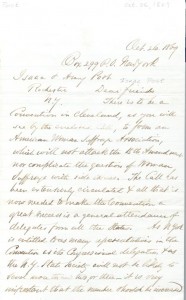 Oct. 22 1869
Box 299 P.O. New York
Isaac & Amy Post
Rochester Dear friends
N.Y. There is to be a
Convention in Cleveland, as you will
see by the to form an
American Woman Suffrage Association,
which will not attack the 15th Amendment
nor complicate the question of Woman
Suffrage with side issues. The Call has
been extensively circulated & all that is
now needed to make the Convention a
great success is a general attendance of
delegates from all the States. As N. York
is entitled to as many representatives in the
Convention as its Congressional delegation & as
the N.Y. State Society will not be likely to
send more than two or three it is very
important that the number should be